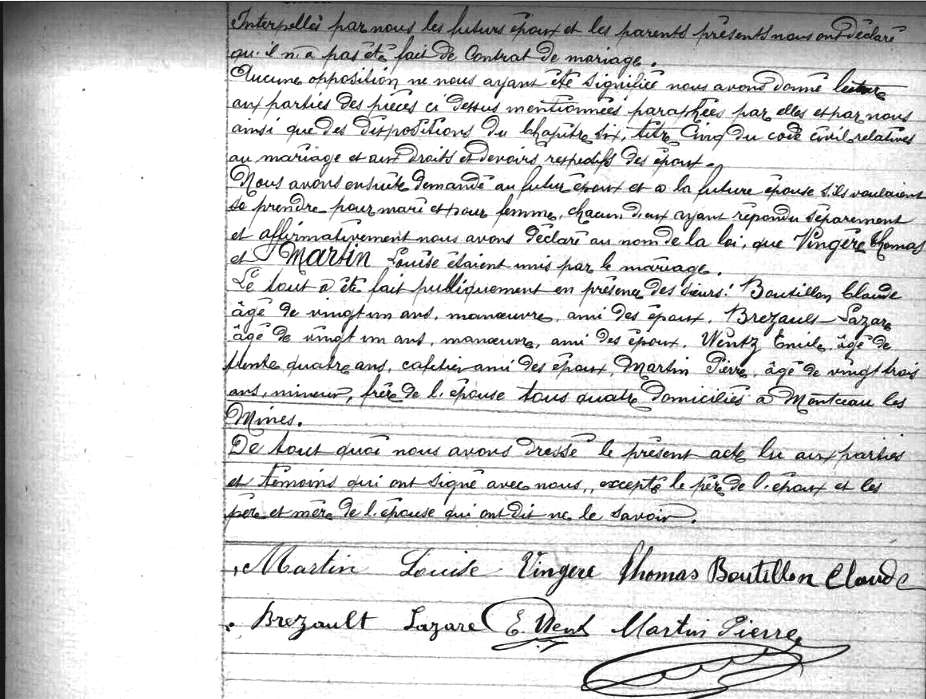 Interpellés par nous les futurs époux et les parents présents nous ont déclaré
qu'il n'a pas été fait de Contrat de mariage.
Aucune opposition ne nous ayant été signifiée nous avons donné lecture
aux parties des pièces ci dessus mentionnées paraphées par elles et par nous
ainsi que des dispositions du Chapitre six, titre Cinq du code civil relatives
au mariage et aux droits et devoirs respectifs des époux.
Nous avons ensuite demandé au futur époux et a la future épouse s'ils voulaient
se prendre pour mari et pour femme, chacun d'eux ayant répondu séparement
et affirmativement nous avons déclaré au nom de la loi, que Vingère Thomas
et Martin Louise étaient unis par le mariage.
Le tout a été fait publiquement en présence des sieurs: Boutillon Claude
âgé de vingt un ans, manœuvre, ami des époux, Brezault Lazare
âgé de vingt un ans, manœuvre, ami des époux, Wentz Emile, âgé de
trente quatre ans, cafetier ami des époux, Martin Pierre, âgé de vingt trois
ans, mineur, frère de l'épouse tous quatre domiciliés à Montceau les
Mines.
De tout quoi nous avons dressé le présent acte lu aux parties
et témoins qui ont signé avec nous, excepté le père de l'époux et les
père et mère de l'épouse qui ont dit ne le savoir.
Martin Louise Vingere Thomas Boutillon Claude
Brezault Lazare E. Martin Pierre